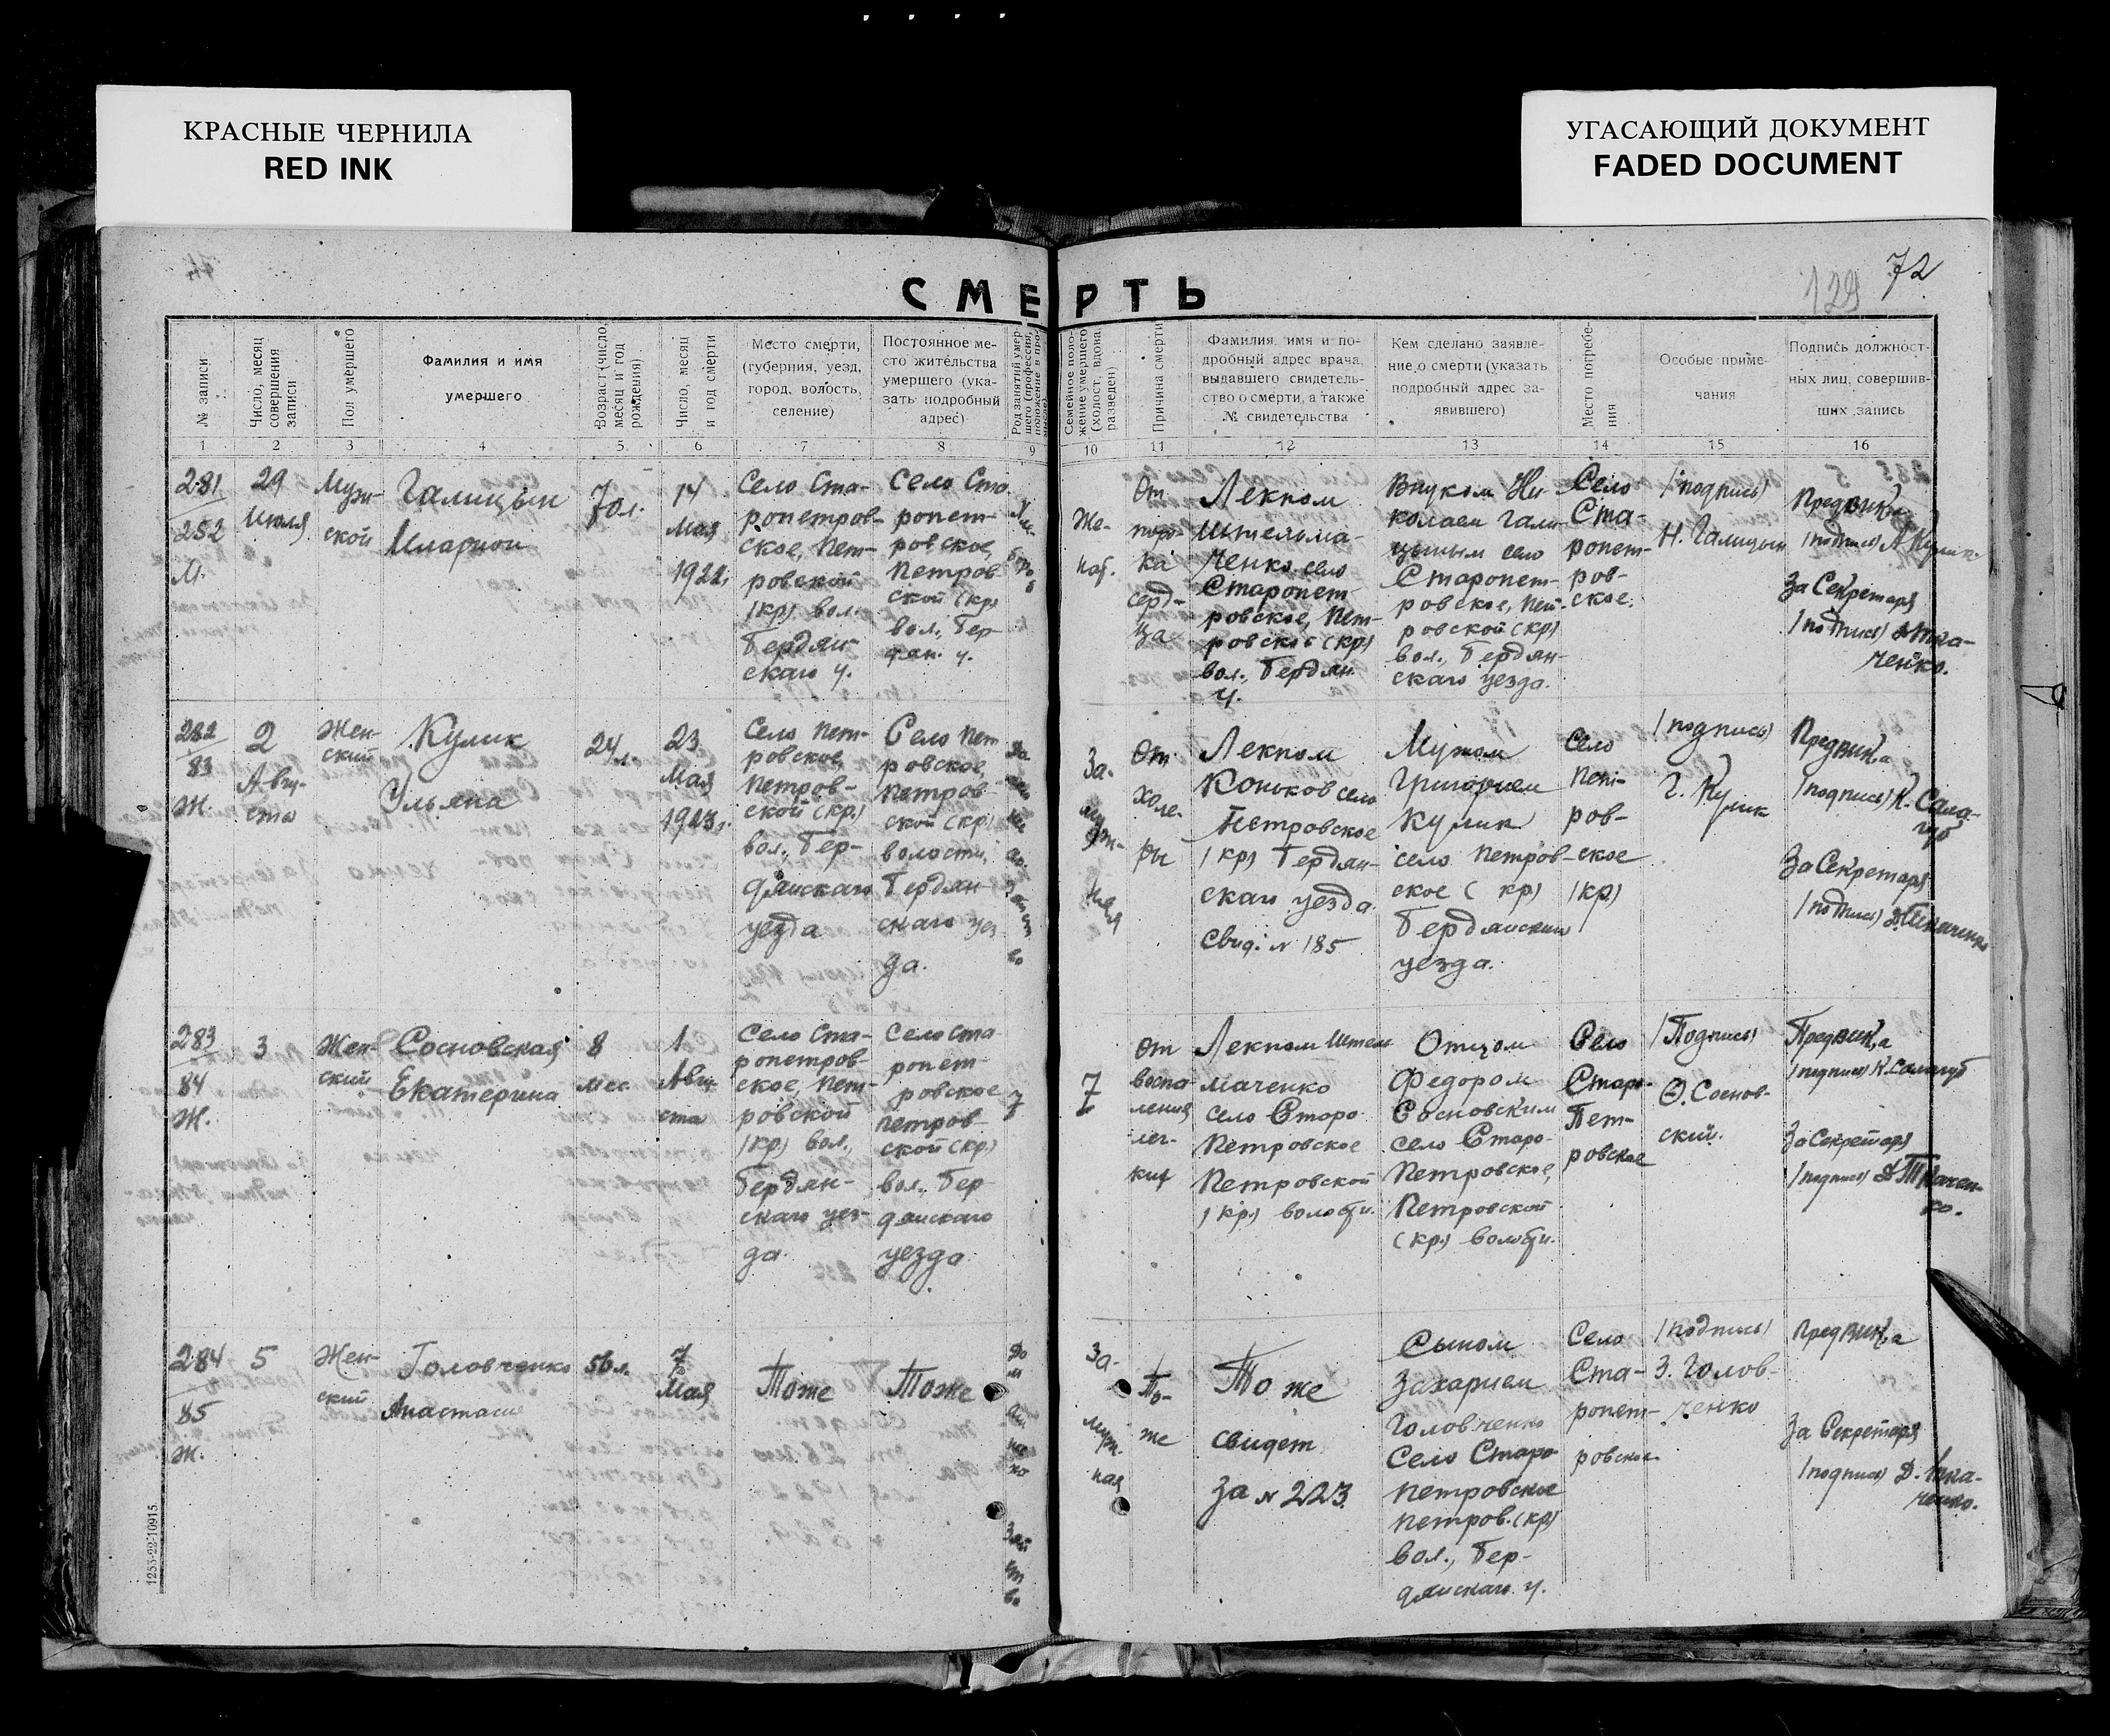 КРАСНЫЕ ЧЕРНИЛА
RED INK
УГАСАЮЩИЙ ДОКУМЕНТ
FADED DOCUMENT
72
129
СМЕРТЬ
№ записи
Число, месяц
совершения
записи
Пол умершего
Фамилия и имя
умершего
Возраст (число,
месяц и год
рождения)
Число, месяц
и год смерти
Место смерти,
(губерния, уезд,
город, волость,
селение)
Постоянное ме-
сто жительства
умершего (ука-
зать подробный
адрес)
Род занятий умер-
шего (профессия,
положение в про-
Семейное поло-
жение умершего
(холост, вдова,
разведен)
Причина смерти
Фамилия, имя и по-
дробный адрес врача,
выдавшего свидетель-
ство о смерти, а также
№ свидетельства
Кем сделано заявле-
ние о смерти (указать
подробный адрес за-
явившего)
Место погребе-
ния
Особые приме-
чания
Подпись должност-
ных лиц, совершив-
ших запись
1 2 3 4 5 6 7 8 9 10 11 12 13 14 15 16
281
252
М.
29
Июля
Муж-
ской
Галицын
Иларион
70 л.
14
Мая
1922 г.
Село Ста-
ропетров-
ское, Пет-
ровской
(кр) вол.
Бердян-
скаго у.
Село Ста
ропет-
ровское,
Петров-
ской (кр)
вол., Бер-
дян. у.
Же-
нат.
От
поро-
ка
серд-
ца
Лекпом
Штельма-
ченко село
Старопет-
ровское, Пет-
ровской (кр)
вол., Бердян.
у.
Внуком Ни-
колаем Гали-
цыным село
Старопет-
ровское, Пет-
ровской (кр)
вол., Бердян-
скаго уезда.
Село
Ста-
ропет-
ров-
ское.
(подпись)
Н. Галицын
Предвик,а
(подпись) А Кулик.
За Секретаря
(подпись) Д Тка-
ченко.
282
83
Ж.
2
Авгу-
ста
Жен-
ский
Кулик
Ульяна
24 л.
23
Мая
1923 г.
Село Пет-
ровское,
Петров-
ской (кр.)
вол., Бер-
дянскаго
уезда
Село Пет
ровское,
Петров-
ской (кр.)
волости,
Бердян-
скаго уез
да.
За-
муж-
няя
От
холе-
ры
Лекпом
Коньков село
Петровское
(кр) Бердян-
скаго уезда.
Свид. № 185
Мужом
Григорием
Кулик
село Петров-
ское (кр)
Бердянский
уезда.
Село
Пет-
ров-
ское
(кр)
(подпись)
Г. Кулик
Предвик,а
(подпись) К. Сала-
губ
За Секретаря
(подпись) Д. Ткаченко
283
84
Ж.
3
Жен-
ский
Сосновская
Екатерина
8
мес
1
Авгу-
ста
Село Ста-
ропетров-
ское, Пет-
ровской
(кр) вол.,
Бердян-
скаго уез-
да.
Село Ста
ропет-
ровское
Петров-
ской (кр.)
вол., Бер-
дянскаго
уезда
От
воспа-
ления
лег-
ких
Лекпом Штель
маченко
село Старо-
Петровское
Петровской
(кр.) волости.
Отцом
Федором
Сосновским
село Старо-
Петровское,
Петровской
(кр.) волости.
Село
Старо-
Пет-
ровское
(Подпись)
Ѳ. Соснов-
ский.
Предвик,а
(подпись) К. Салагуб
За Секретаря
(подпись) Д Ткачен-
ко.
284
85
Ж.
5
Жен-
ский
Головченко
Анастасия
56 л.
7
Мая
Тоже
Тоже
За-
муж-
няя
То-
же
То же
свидет.
за № 223.
Сыном
Захарием
Головченко
Село Старо
Петровское
Петров. (кр)
вол., Бер-
дянскаго у.
Село
Ста-
ропет-
ровское.
(подпись)
З. Голов-
ченко
Предвик,а
За Секретаря
(подпись) Д. Тка-
ченко.
1253-22-10915.